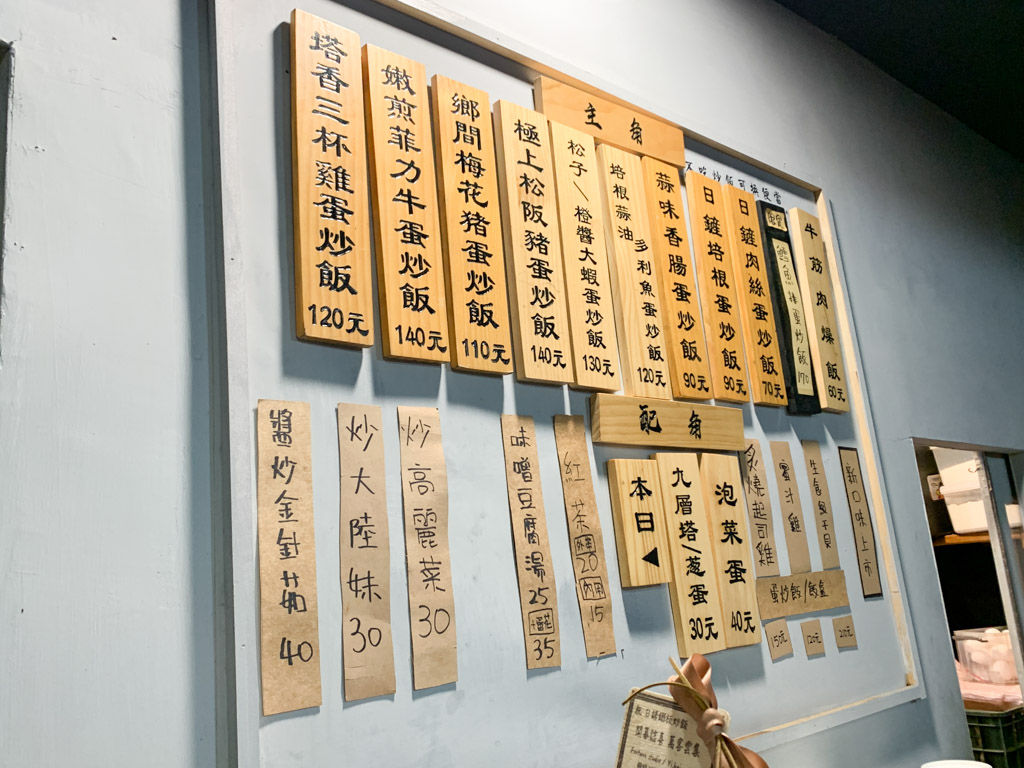 主角
塔香三杯雞蛋炒飯 120元
嫩煎菲力牛蛋炒飯 140元
鄉間梅花猪蛋炒飯 110元
極上松阪豬蛋炒飯 140元
松子/橙醬大蝦蛋炒飯 130元
培根蒜油多利魚蛋炒飯 120元
蒜味香腸蛋炒飯 90元
日鏟培根蛋炒飯 90元
日鏟肉絲蛋炒飯 70元
蛋炒飯 170
牛筋肉燥飯 60元
配角
醬炒金針菇 40
炒大陸妹 30
炒高麗菜 30
味噌豆腐湯 25
35
紅茶 外帶 20 內用 15
本日◀
九層塔/蔥蛋 30元
泡菜蛋 40元
炙燒起司雞
蜜汁雞
生食級干貝
新口味上市
蛋炒飯/飯盒
150元
120元
210元